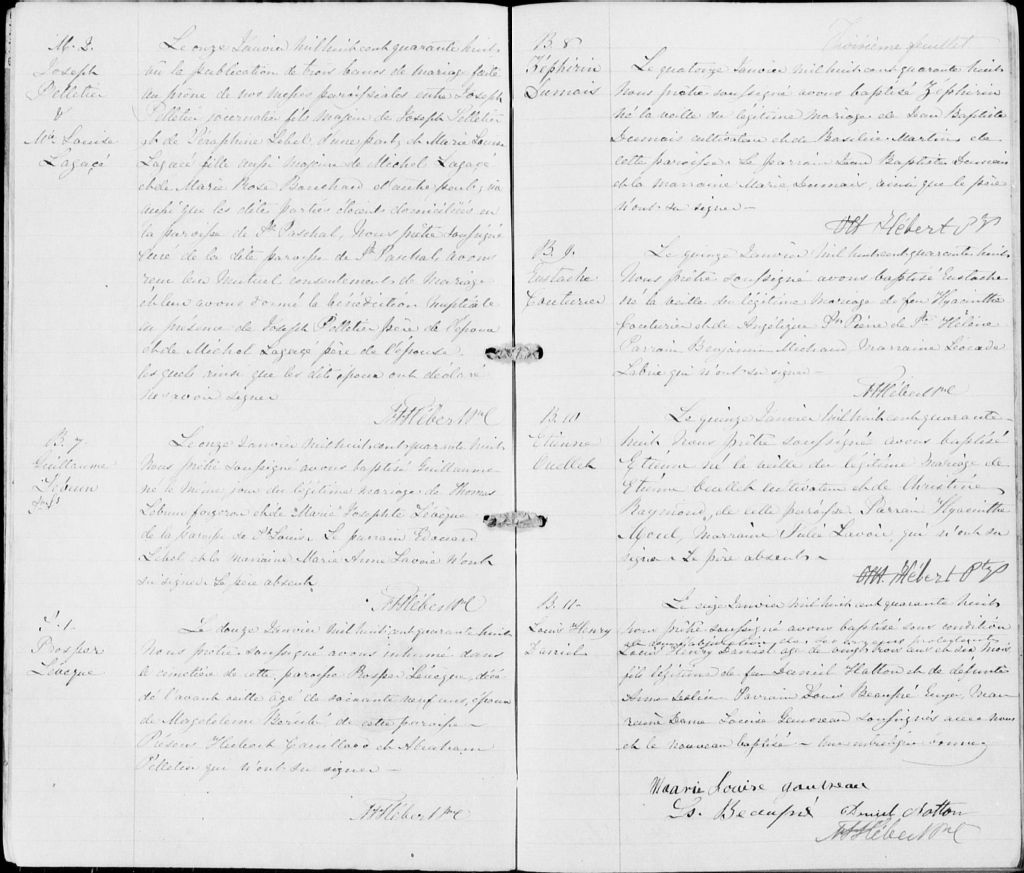 M. 2.
Joseph
Pelletier
&
Mie Louise
Lagacé
Le onze Janvier mil huit cent quarante huit
vu la publication de trois bancs de mariage faite
au prône de nos messes paroissiales entre Joseph
Pelletier journalier fils majeur de Joseph Pelletier
et de Séraphine Lebel, d'une part, et Marie Louise
Lagacé fille aussi majeure de Michel Lagacé,
et de Marie Rose Bouchard d'autre part;
que les dites parties étaient domiciliées en
la paroisse de St. Paschal, Nous prêtre soussigné
curé de la dite paroisse de St. Paschal avons
reçu leur mutuel consentement de mariage
et leur avons donné la bénédiction nuptiale
en présence de Joseph Pelletier père de l'époux
et de Michel Lagacé père de l'épouse
lesquels ainsi que les dits époux ont déclaré
ne savoir signer
NHébert Ptre
B. 7.
Guillaume
Lebrun
Le onze Janvier mil huit cent quarante huit
Nous prêtre soussigné avons baptisé Guillaume
né le même jour du légitime mariage de Thomas
Lebrun forgeron et de Marie Josephte Lévêque
de la paroisse de St. Louis. Le parrain Edouard
Lebel et la marraine Marie Anne Lavoie n'ont
su signer. Le père absent.
NHébert Ptre
S. 1.
Prosper
Lévêque
Le douze Janvier mil huit cent quarante huit
Nous prêtre soussigné avons inhumé dans
le cimetière de cette paroisse Prosper Lévêque, décé-
dé l'avant veille agé de soixante neuf ans, époux
de Magdeleine de cette paroisse —
Présens Hubert et Abraham
Pelletier qui n'ont su signer —
NHébert Ptre
Troisième feuillet
B. 8
Zéphirin
Dumais
Le quatorze Janvier mil huit cent quarante huit
Nous prêtre soussigné avons baptisé Zéphirin
né la veille du légitime mariage de Jean Baptiste
Dumais cultivateur et de Basilice Martin de
cette paroisse. Le parrain Jean Baptiste Dumais
et la marraine Marie Dumais, ainsi que le père
n'ont su signer —
NH Hébert Ptre
B. 9.
Eustache
Couturier
Le quinze Janvier mil huit cent quarante huit
Nous prêtre soussigné avons baptisé Eustache
né la veille du légitime mariage de feu Hyacinthe
Couturier et de Angélique St. Pierre de Ste Hélène
Parrain Benjamin Michaud, Marraine Léocade
Labrie qui n'ont su signer —
NHébert Ptre
B. 10
Etienne
Ouellet
Le quinze Janvier mil huit cent quarante-
huit Nous prêtre soussigné avons baptisé
Etienne né la veille du légitime mariage de
Etienne Ouellet cultivateur et de Christine
Raymond, de cette paroisse. Parrain Hyacinthe
Marraine Julie Lavoie, qui n'ont su
signer. Le père absent.
NH. Hébert Ptre
B. 11.
Louis Henry
Daniel
Le seize Janvier mil huit cent quarante huit
nous prêtre soussigné avons baptisé sous condition
Louis Henry Daniel agé de vingt trois ans et dix mois
fils légitime de feu Daniel Hatton et de défunte
Anne Leslie. Parrain Louis Beaupré Ecuyer, Mar-
raine Dame Louise Gauvreau soussignés avec nous
et le nouveau baptisé —
Maarie Louise Gauvreau
Ls. Beaupré Daniel Hatton
NHébert Ptre